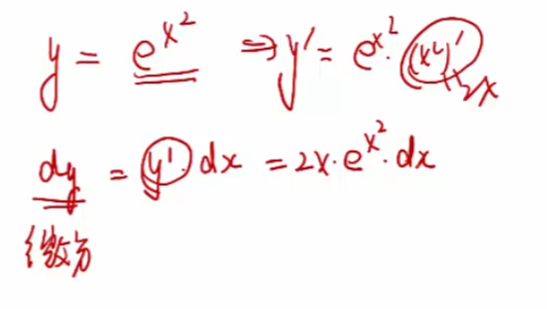 y = e^{x^2} ⇒ y' = e^{x^2}·(x^2)' 2x
dy = y'·dx = 2x·e^{x^2}·dx
微分